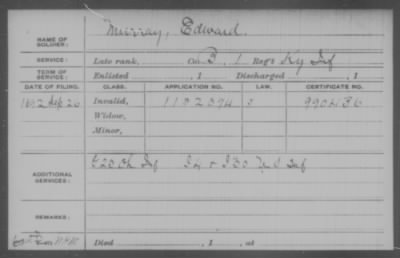 NAME OF SOLDIER: Murray, Edward.
SERVICE: Late rank, Co. B, 1 Reg't Ky Inf
TERM OF SERVICE: Enlisted , 1 Discharged , 1
DATE OF FILING. CLASS. APPLICATION NO. LAW. CERTIFICATE NO.
1892 Sep 26 Invalid, 990436
Widow,
Minor,
ADDITIONAL SERVICES: Inf I 4 + I 30 U S Inf
REMARKS:
Died , 1 , at